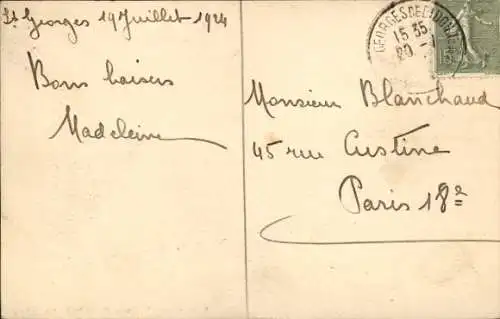 St Georges 19 Juillet 1924
Bons baisers
Madeleine
GEORGES DE DIDONNE
15 35
20 -
Monsieur Blanchaud
45 rue Custine
Paris 18e